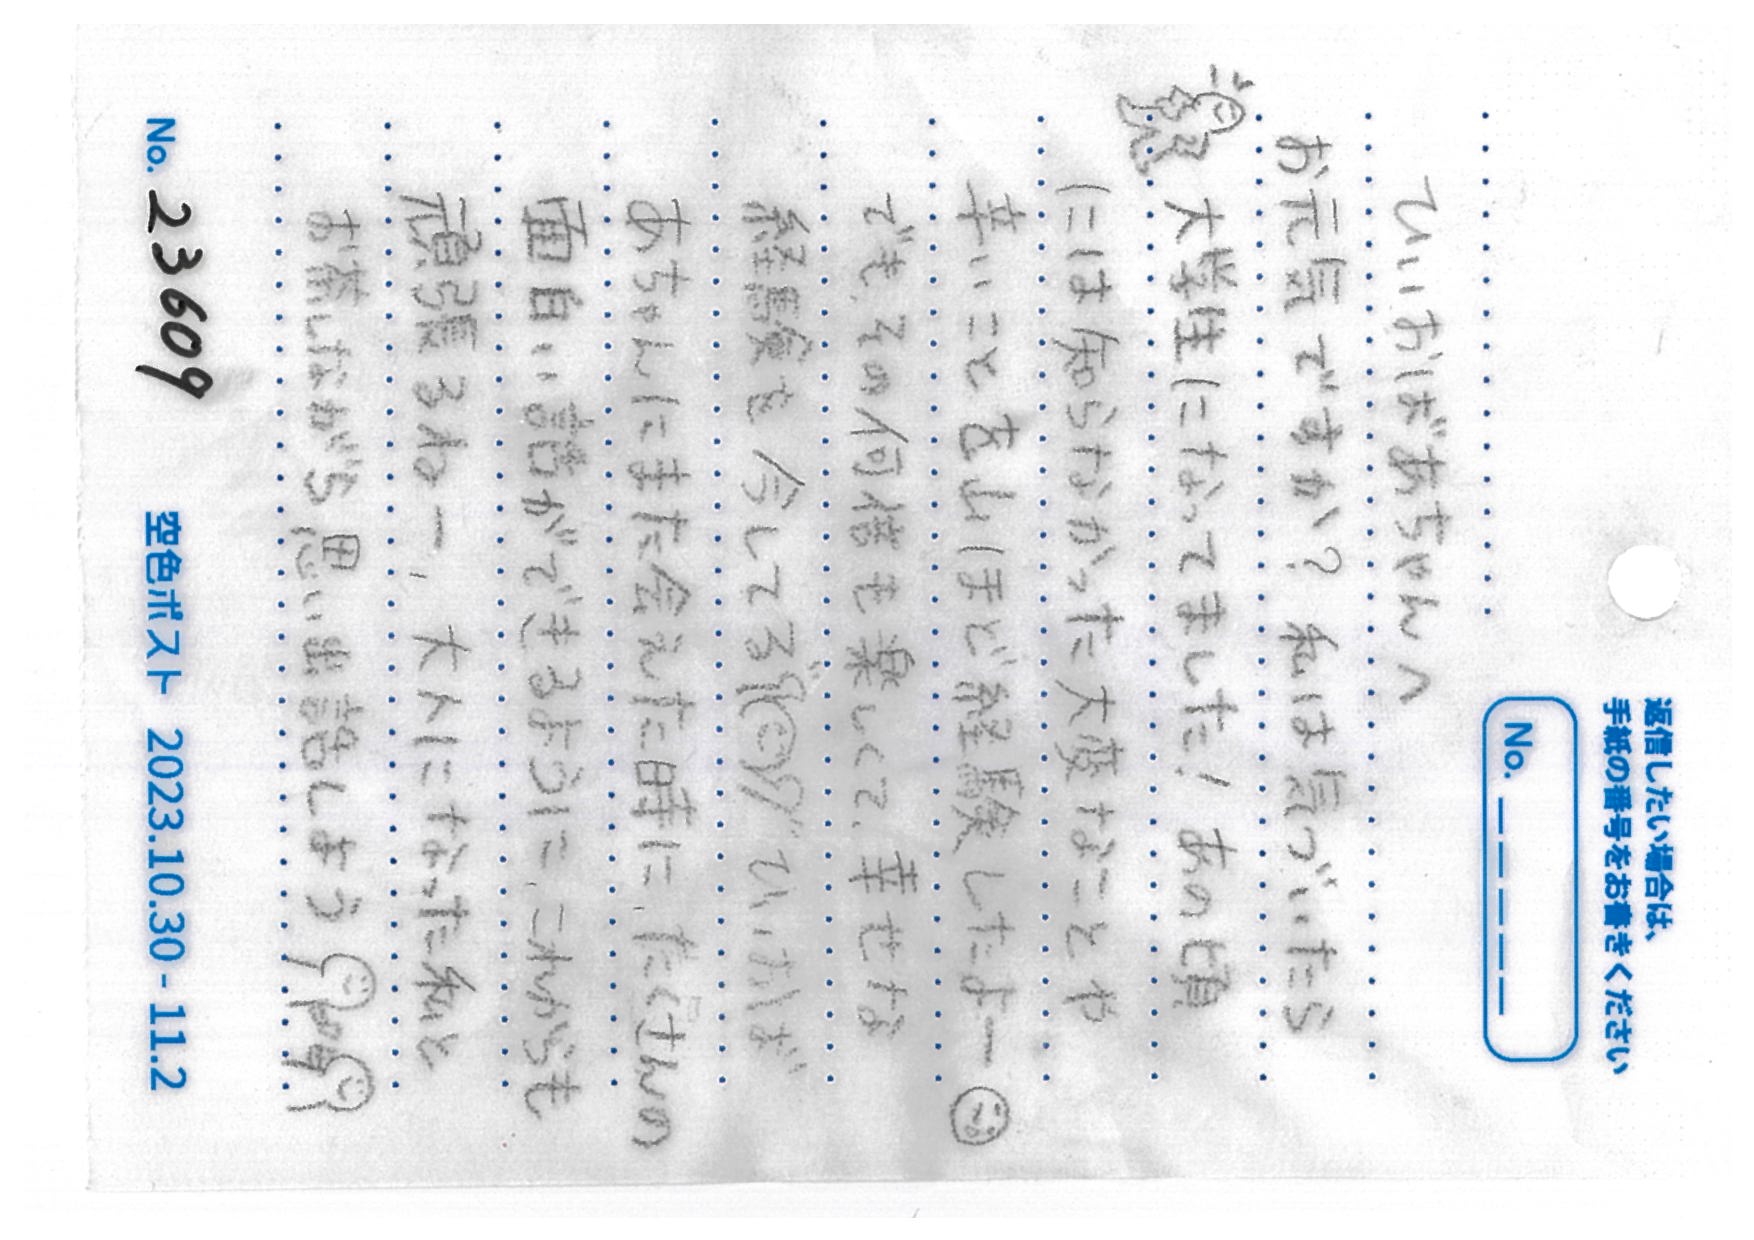 返信したい場合は、
手紙の番号をお書きください
No. _ _ _ _ _
ひいおばあちゃんへ
お元気ですか？ 私は気づいたら
大学生になってました！ あの頃
には知らなかった大変なことや
辛いことを山ほど経験したよー
でも、その何倍も楽しくて、幸せな
経験を今してる ひいおば
あちゃんにまた会えた時に、たくさんの
面白い話ができるように、これからも
頑張るねー、大人になった私と
お茶しながら思い出話しよう
No. 23609
空色ポスト 2023.10.30 - 11.2